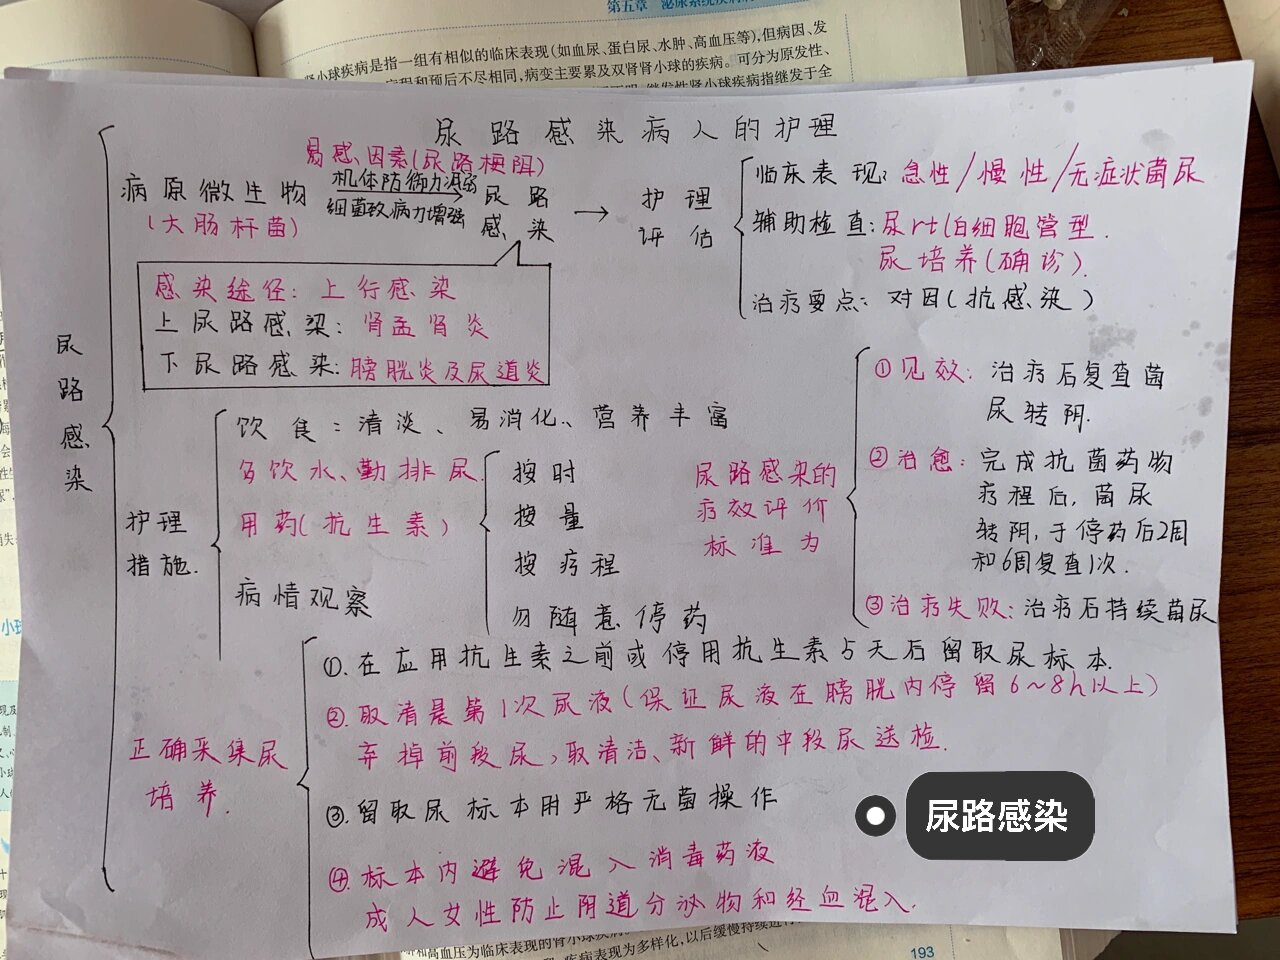 第五章 泌尿系统疾病
肾小球疾病是指一组有相似的临床表现(如血尿、蛋白尿、水肿、高血压等),但病因、发
病程和预后不尽相同,病变主要累及双肾肾小球的疾病。可分为原发性、
继发性肾小球疾病指继发于全
尿路感染病人的护理
易感因素(尿路梗阻)
病原微生物
(大肠杆菌)
机体防御力减弱
细菌致病力增强
尿路
感染
护理
评估
临床表现:急性/慢性/无症状菌尿
辅助检查:尿rt(白细胞管型.
尿培养(确诊).
治疗要点:对因(抗感染)
感染途径:上行感染
上尿路感染:肾盂肾炎
下尿路感染:膀胱炎及尿道炎
尿路感染
护理
措施.
饮食:清淡、易消化、营养丰富
多饮水、勤排尿.
用药(抗生素)
按时
按量
按疗程
勿随意停药
病情观察
尿路感染的
疗效评价
标准为
①见效:治疗后复查菌
尿转阴.
②治愈:完成抗菌药物
疗程后,菌尿
转阴,于停药后2周
和6周复查1次.
③治疗失败:治疗后持续菌尿
正确采集尿
培养.
①.在应用抗生素之前或停用抗生素5天后留取尿标本.
②.取清晨第1次尿液(保证尿液在膀胱内停留6~8h以上)
弃掉前段尿,取清洁、新鲜的中段尿送检.
③.留取尿标本用严格无菌操作
④.标本内避免混入消毒药液
成人女性防止阴道分泌物和经血混入.
尿路感染
和高血压为临床表现的肾小球疾病。
疾病表现为多样化,以后缓慢持续进行
193